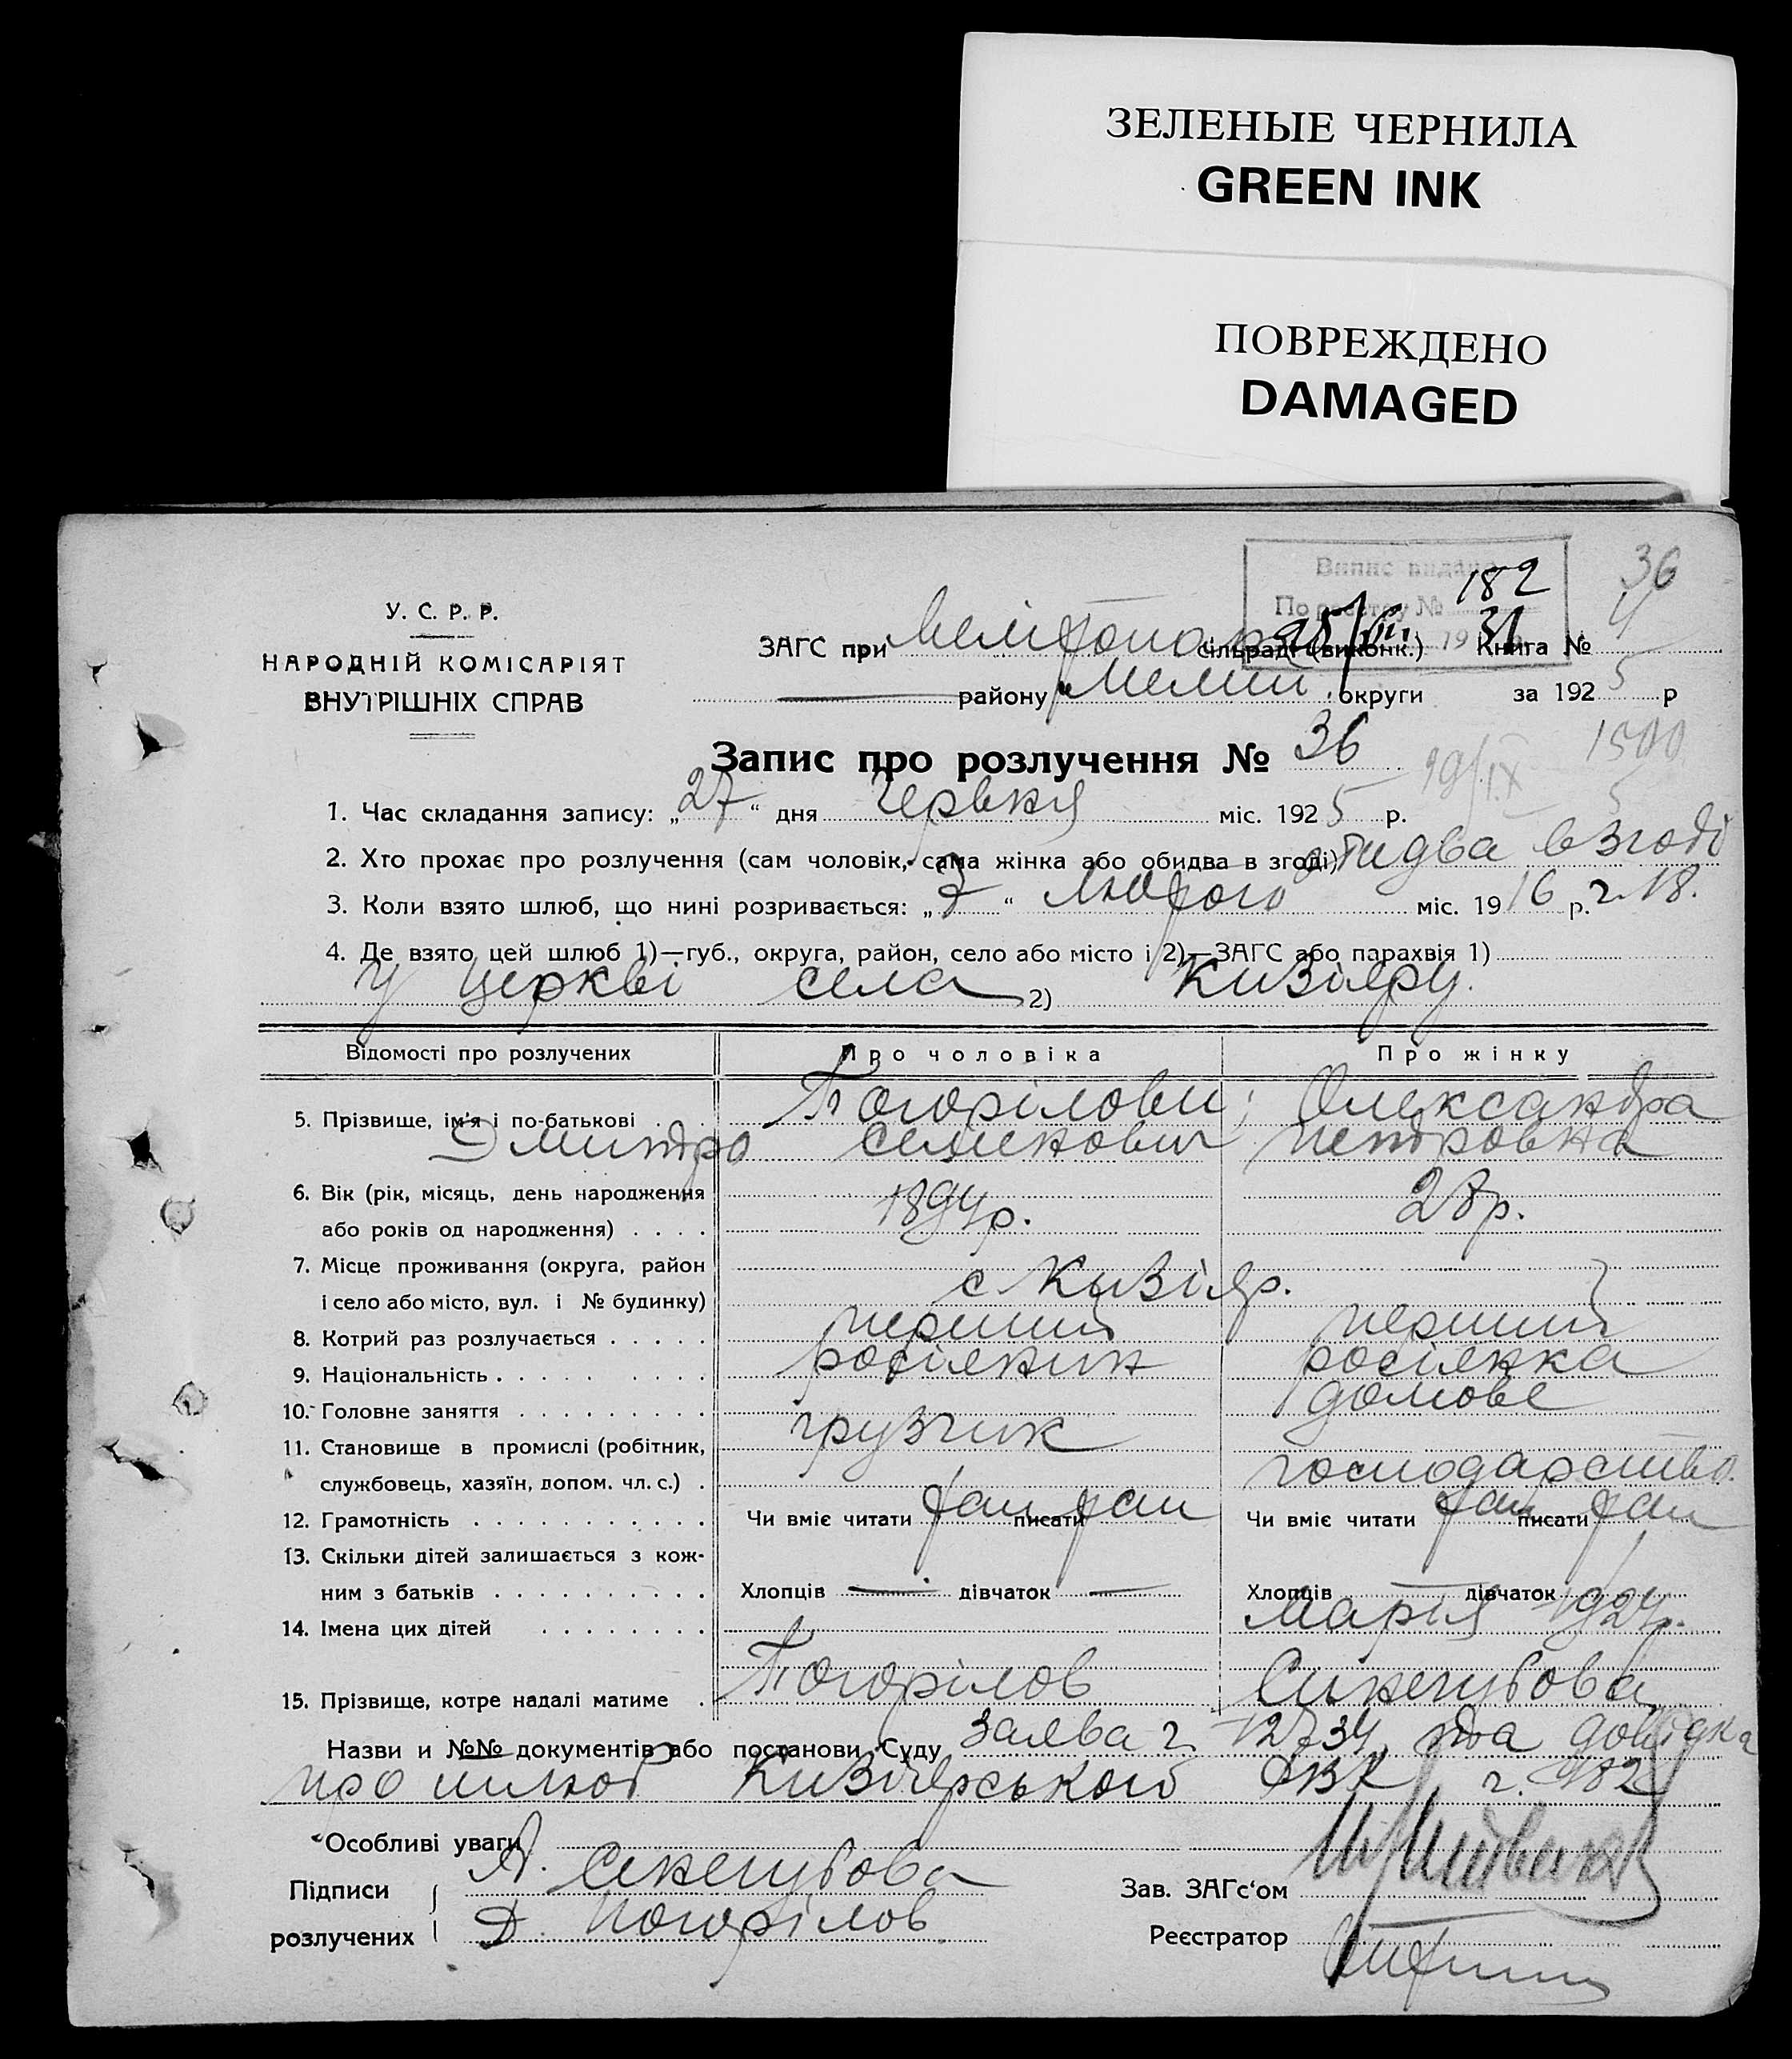 ЗЕЛЕНЫЕ ЧЕРНИЛА
GREEN INK
ПОВРЕЖДЕНО
DAMAGED
Випис видано 36
По реєстру № 182
У. С. Р. Р.
НАРОДНІЙ КОМІСАРІЯТ
ВНУТРІШНІХ СПРАВ
ЗАГС при сільраді (виконк.) 31 Книга № 4
району Мелит. округи за 1925 р
Запис про розлучення № 36
19/IX 1500
1. Час складання запису: „27“ дня Червня міс. 1925 р. 5
2. Хто прохає про розлучення (сам чоловік, сама жінка або обидва в згоді) обидва в згоді
3. Коли взято шлюб, що нині розривається: „“ Лютого міс. 1916 р. ч. 18.
4. Де взято цей шлюб 1)—губ., округа, район, село або місто і 2)—ЗАГС або парахвія 1)
У церкві села 2) Кизіяру.
Відомості про розлучених Про чоловіка Про жінку
5. Прізвище, ім'я і по-батькові Погорілови; Олександра
Дмитро Семенович Петровна
6. Вік (рік, місяць, день народження
або років од народження) 1894 р. 28 р.
7. Місце проживання (округа, район
і село або місто, вул. і № будинку) с Кизіяр.
8. Котрий раз розлучається перший перший
9. Національність росіянин росіянка
10. Головне заняття грузчик домове
11. Становище в промислі (робітник,
службовець, хазяїн, допом. чл. с.) господарство.
12. Грамотність Чи вміє читати так писати так Чи вміє читати так писати так
13. Скільки дітей залишається з кож-
ним з батьків Хлопців — дівчаток — Хлопців — дівчаток 1
14. Імена цих дітей Марія 1924 р.
15. Прізвище, котре надалі матиме Погорілов Синегубова
Назви и №№ документів або постанови Суду Заява ч. 12734 та довідка
про шлюб Кизіярського ч. 982
Особливі уваги
Підписи А. Сенегубова Зав. ЗАГс'ом
розлучених Д. Погорілов Реєстратор